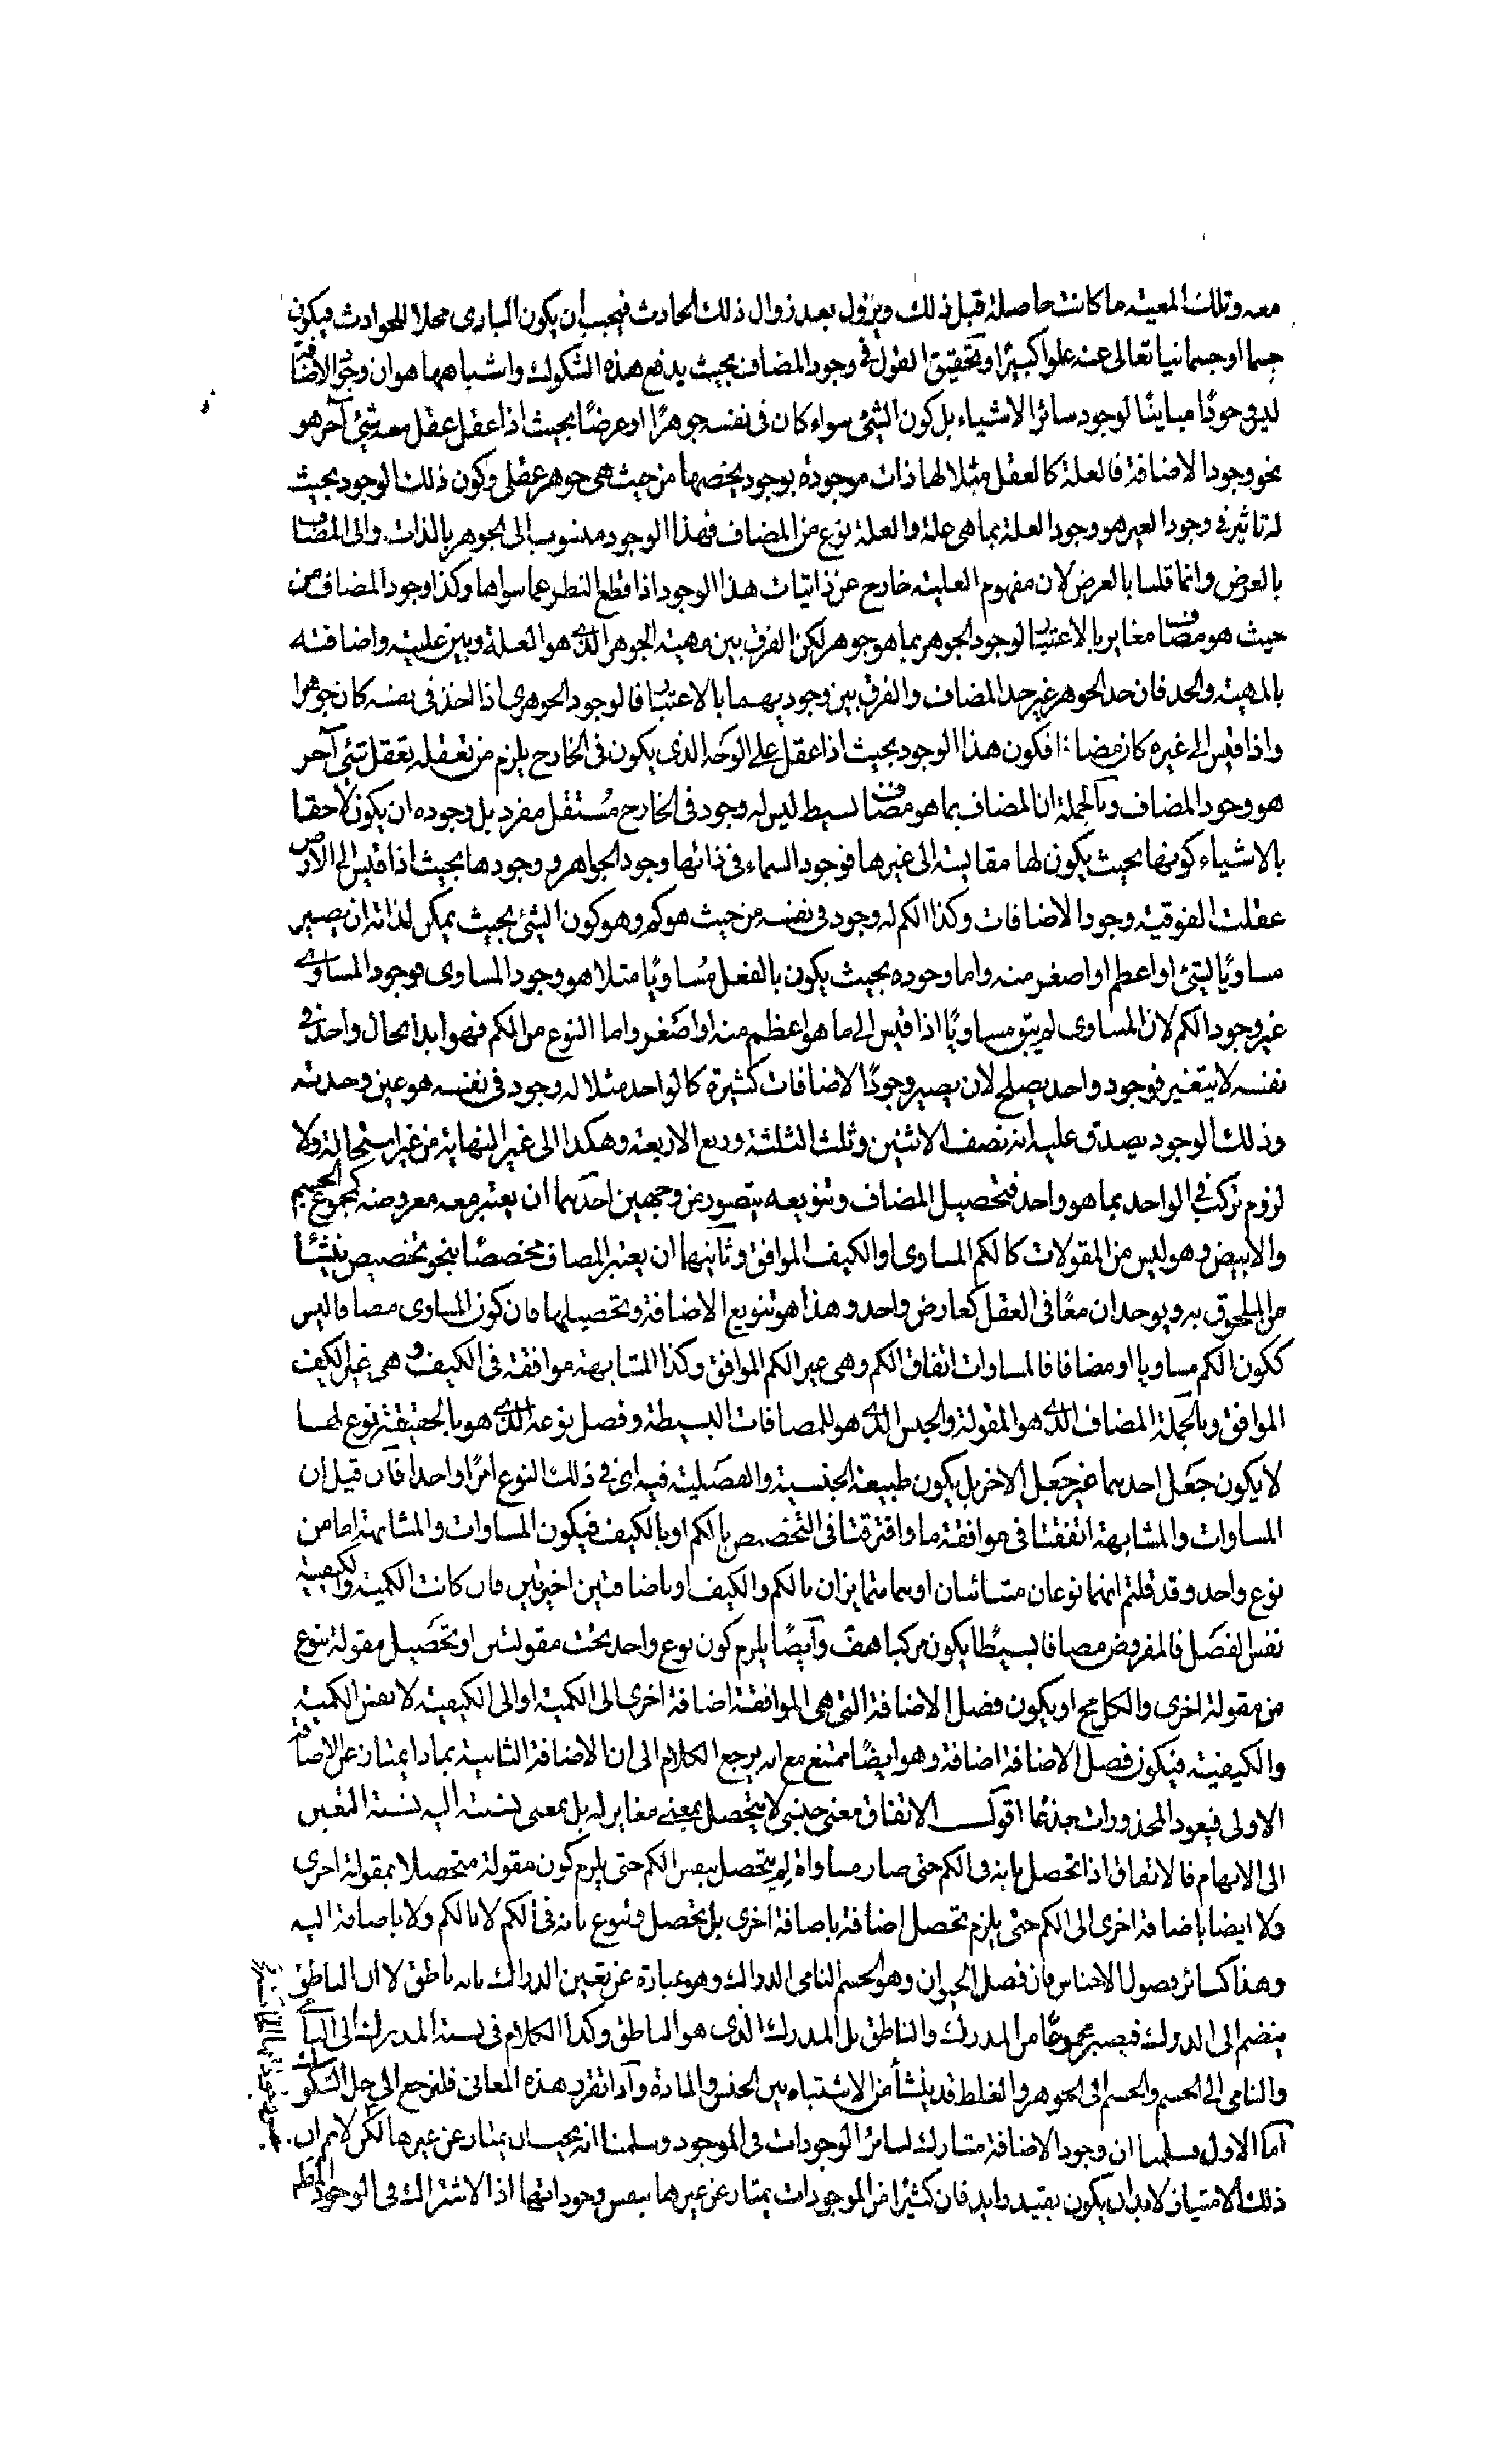 معه وتلك المعيته ما كانت حاصلة قبل ذلك ويزول بعد زوال ذلك الحادث فيجب ان يكون البارى محلا للحوادث فيكون
جسما او جسمانيا تعالى عنه علوا كبيرًا وتحقيق القول فى وجود المضاف بحيث يدفع هذه الشكوك واشباهها هو ان وجود الاضافة
ليس وجودًا مباينًا لوجود سائر الاشياء بل كون الشئ سواء كان فى نفسه جوهرًا او عرضًا بحيث اذا عقل عقل معه شئ آخر هو
نحو وجود الاضافة فالعلة كالعقل مثلا لها ذات موجودة بوجود يخصها من حيث هى جوهر عقلى وكون ذلك الوجود بحيث
له تاثير فى وجود الغير هو وجود العلة بما هى علة والعلة نوع من المضاف فهذا الوجود منسوب الى الجوهر بالذات والى المضاف
بالعرض وانما قلنا بالعرض لان مفهوم العلية خارج عن ذاتيات هذا الوجود اذا قطع النظر عما سواها وكذا وجود المضاف من
حيث هو مضاف مغاير بالاعتبار لوجود الجوهر بما هو جوهر لكن الفرق بين مهية الجوهر الذى هو العلة وبين علية واضافته
بالمهية والحد فان حد الجوهر غير حد المضاف والفرق بين وجوديهما بالاعتبار فالوجود الجوهرى اذا اخذ فى نفسه كان جوهرا
واذا قيس الى غيره كان مضافا فكون هذا الوجود بحيث اذا عقل على الوجه الذى يكون فى الخارج يلزم من تعقله تعقل شئ آخر
هو وجود المضاف وبالجملة ان المضاف بما هو مضاف بسيط ليس له وجود فى الخارج مستقل مفرد بل وجوده ان يكون لاحقا
بالاشياء كونها بحيث يكون لها مقايسة الى غيرها فوجود السماء فى ذاتها وجود الجواهر ووجودها بحيث اذا قيس الى الارض
عقلت الفوقية وجود الاضافات وكذا الكم له وجود فى نفسه من حيث هو كم وهو كون الشئ بحيث يمكن لذاته ان يصير
مساويًا لشئ او اعظم او اصغر منه واما وجوده بحيث يكون بالفعل مساويًا مثلا هو وجود المساوى فوجود المساوى
غير وجود الكم لان المساوى لم يبق مساويًا اذا قيس الى ما هو اعظم منه او اصغر واما النوع من الكم فهو ابدا بحال واحد فى
نفسه لا يتغير فوجود واحد يصلح لان يصير وجودًا لاضافات كثيرة كالواحد مثلا له وجود فى نفسه هو عين وحدته
وذلك الوجود يصدق عليه انه نصف الاثنين وثلث الثلثة وربع الاربعة وهكذا الى غير النهاية من غير استحالة ولا
لزوم تركب فى الواحد بما هو واحد فتحصيل المضاف وتنويعه يتصور من وجهين احدهما ان يعتبر معه معروضه كمجموع الجسم
والابيض وهو ليس من المقولات كالكم المساوى والكيف الموافق وثانيهما ان يعتبر المضاف مخصصًا بنحو تخصيص ينشأ
من الملحوق به ويوجدان معًا فى العقل كعارض واحد وهذا هو تنويع الاضافة وتحصيلها فان كون المساوى مضافا ليس
ككون الكم مساويا او مضافا فالمساوات اتفاق الكم وهى غير الكم الموافق وكذا المشابهة موافقة فى الكيف وهى غير الكيف
الموافق وبالجملة المضاف الذى هو المقولة والجنس الذى هو للمضافات البسيطة وفصل نوعه الذى هو بالحقيقة نوع لها
لا يكون جعل احدهما غير جعل الاخر بل يكون طبيعة الجنسية والفصلية فيه اى فى ذلك النوع امرًا واحدا فان قيل ان
المساوات والمشابهة اتفقتا فى موافقة ما وافترقتا فى التخصيص بالكم او بالكيف فيكون المساوات والمشابهة اما من
نوع واحد وقد قلتم انهما نوعان متباينان او هما متمايزان بالكم والكيف او باضافتين اخيرتين فان كانت الكمية والكيفية
نفس الفصل فالمفروض مضافا بسيطًا يكون مركبا هف وايضًا يلزم كون نوع واحد تحت مقولتين او تحصيل مقولة بنوع
من مقولة اخرى والكل مح او يكون فصل الاضافة التى هى الموافقة اضافة اخرى الى الكمية او الى الكيفية لا نفس الكمية
والكيفية فيكون فصل الاضافة اضافة وهو ايضًا ممتنع مع انه يرجع الكلام الى ان الاضافة الثانية بماذا يمتاز عن الاضافة
الاولى فيعود المحذورات جذعًا اقول الاتفاق معنى جنسى لا يتحصل بمعنى مغاير له بل بمعنى نسبته اليه نسبة التعين
الى الابهام فالاتفاق اذا تحصل بانه فى الكم حتى صار مساواة لم يتحصل بنفس الكم حتى يلزم كون مقولة متحصلا بمقولة اخرى
ولا ايضا باضافة اخرى الى الكم حتى يلزم تحصل اضافة باضافة اخرى بل تحصل وتنوع بانه فى الكم لا بالكم ولا باضافة اليه
وهذا كسائر فصول الاجناس فان فصل الحيوان وهو الجسم النامى الدراك وهو عبارة عن تعين الدراك بانه ناطق لا ان الناطق
ينضم الى الدراك فيصير مجموعًا من المدرك والناطق بل المدرك الذى هو الناطق وكذا الكلام فى نسبة المدرك الى النامى
والنامى الى الجسم والجسم الى الجوهر والغلط قد ينشأ من الاشتباه بين الجنس والمادة واذا تقرر هذه المعانى فلنرجع الى حل الشكوك
اما الاول فسلمنا ان وجود الاضافة مشارك لسائر الوجودات فى الموجود وسلمنا انه يجب ان يمتاز عن غيرها لكن لا نم ان
ذلك الامتياز لابد ان يكون بقيد زايد فان كثيرًا من الموجودات يمتاز عن غيرها بنفس وجوداتها اذا الاشتراك فى الوجود المطلق